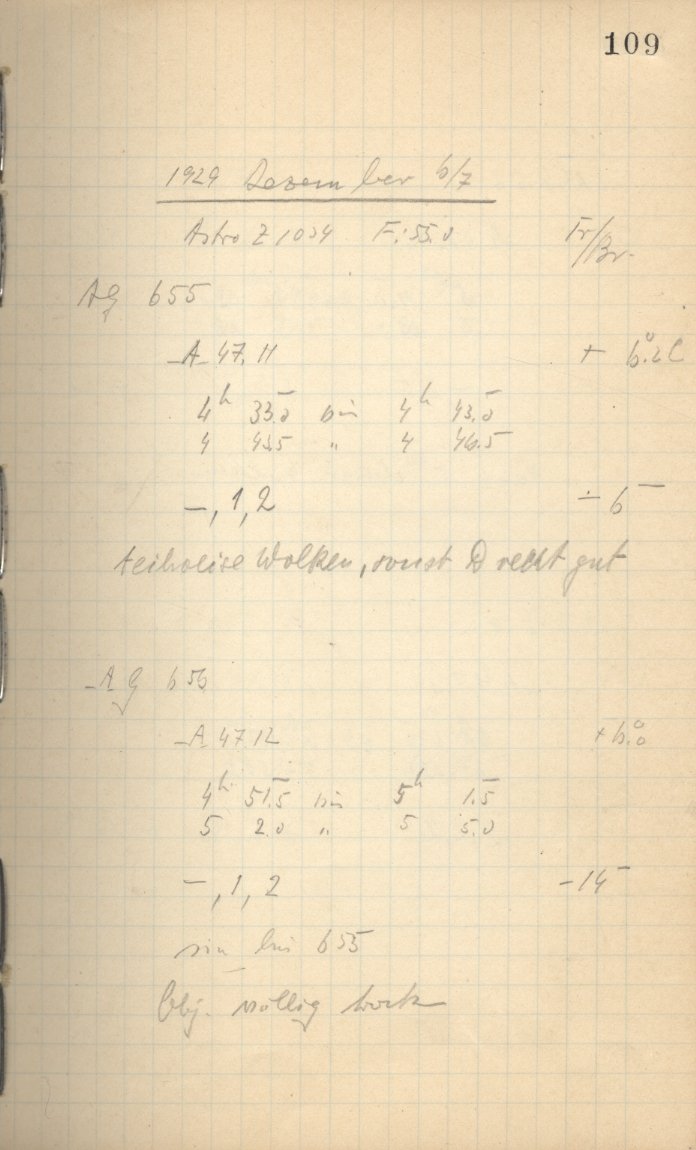 109
1929 Dezember 6/7
Astro Z 1034 F: 55.0 Fr/Br.
AG 655
A 47.11 + 6°.2 C
4h 33.0 bis 4h 43.0
4 43.5 " 4 46.5
–, 1, 2 – 6
teilweise Wolken, sonst D recht gut
AG 656
A 47 12 + 6°.0
4h 51.5 bis 5h 1.5
5 2.0 " 5 5.0
–, 1, 2 – 14
wie bei 655
Obj. völlig trocken